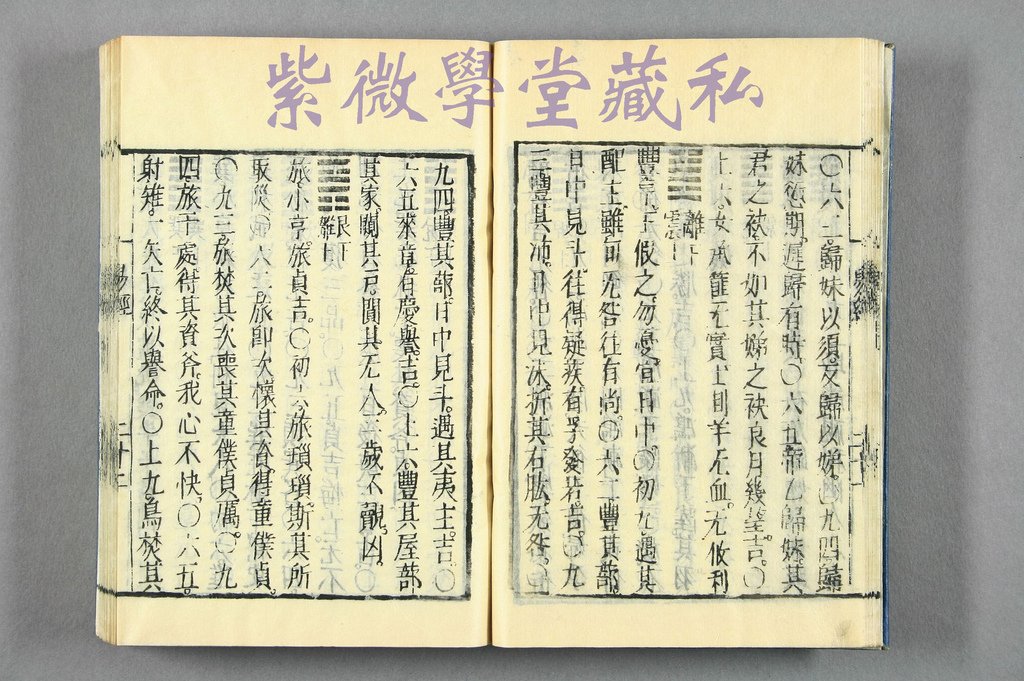 紫微學堂藏私
〇六三。歸妹以須。反歸以娣。〇九四。歸
妹愆期。遲歸有時。〇六五。帝乙歸妹。其
君之袂不如其娣之袂良。月幾望。吉。〇
上六。女承筐无實。士刲羊无血。无攸利
離下
震上
豐。亨。王假之。勿憂。宜日中。〇初九。遇其
配主。雖旬无咎。往有尚。〇六二。豐其蔀。
日中見斗。往得疑疾。有孚發若。吉。〇九
三。豐其沛。日中見沬。折其右肱。无咎。
九四。豐其蔀。日中見斗。遇其夷主。吉。〇
六五。來章。有慶譽。吉。〇上六。豐其屋。蔀
其家。闚其戶。闃其无人。三歲不覿。凶。〇
艮下
離上
旅。小亨。旅貞吉。〇初六。旅瑣瑣。斯其所
取災。〇六二。旅即次。懷其資。得童僕貞。
〇九三。旅焚其次。喪其童僕。貞厲。〇九
四。旅于處。得其資斧。我心不快。〇六五。
射雉。一矢亡。終以譽命。〇上九。鳥焚其
易經